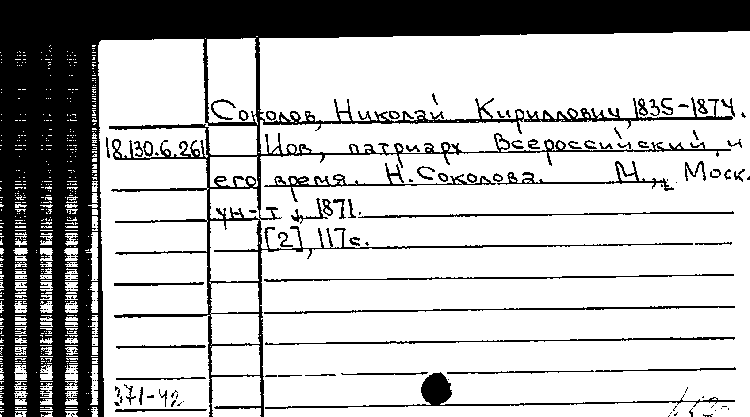 Соколов, Николай Кириллович, 1835-1874.
18.130.6.261 Иов, патриарх Всероссийский, и
его время. Н. Соколова. М., Моск.
ун-т, 1871.
[2], 117с.
371-42